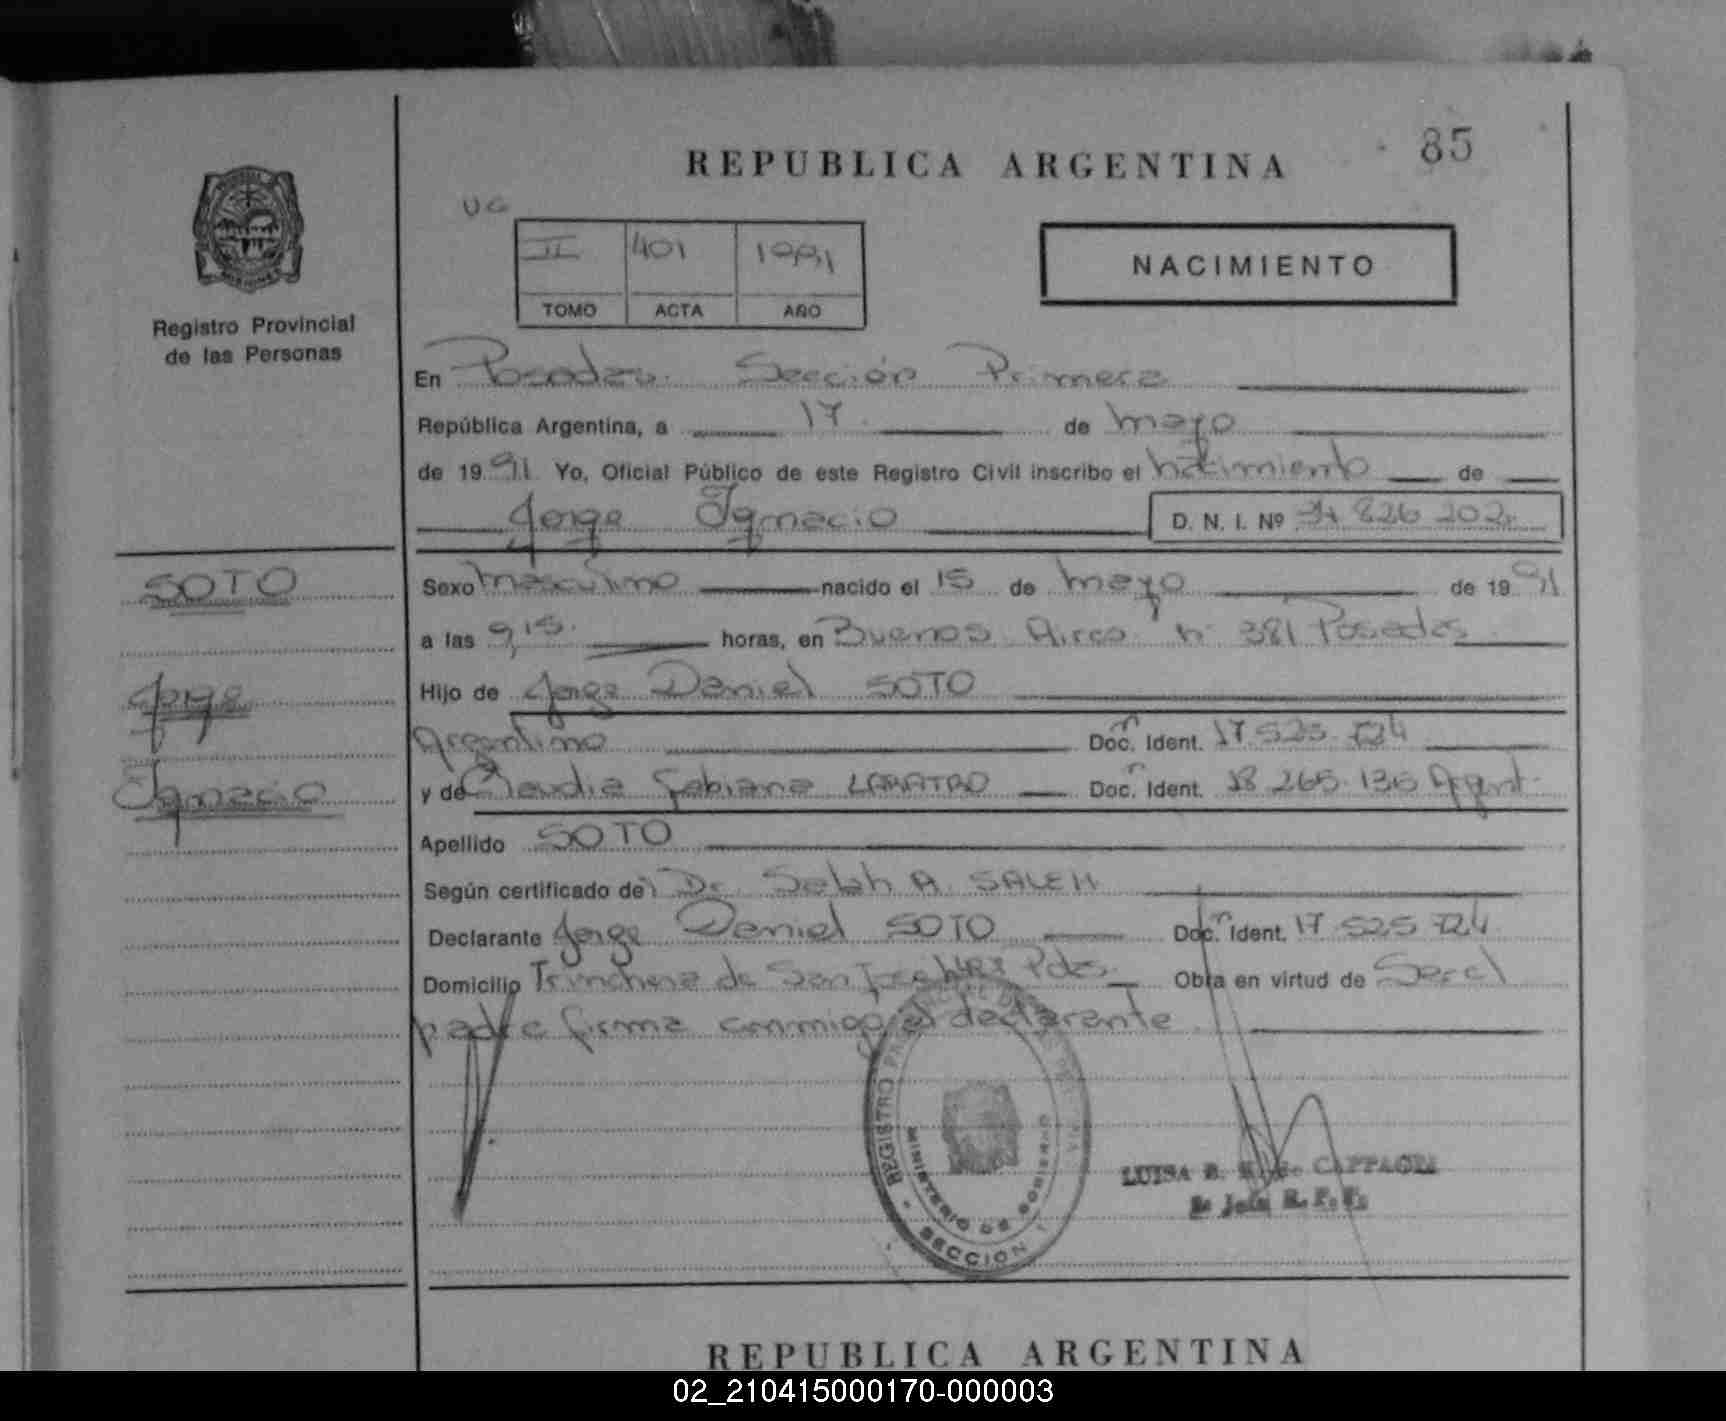 REPUBLICA ARGENTINA
85
UG
II 401 1991
TOMO ACTA AÑO
NACIMIENTO
Registro Provincial
de las Personas
En Posadas. Sección Primera
República Argentina, a 17 de mayo
de 1991 Yo, Oficial Público de este Registro Civil inscribo el nacimiento de
Jorge Ignacio D. N. I. Nº 826 202
SOTO
Jorge
Ignacio
Sexo masculino nacido el 15 de mayo de 1991
a las 9,15. horas, en Buenos Aires n° 381 Posadas
Hijo de Jorge Daniel SOTO
Argentino Doc. Ident. 17.525.724
y de Claudia Fabiana LABATRO Doc. Ident. 18 265.136 Argent.
Apellido SOTO
Según certificado del Dr. A. SALEH
Declarante Jorge Daniel SOTO Doc. Ident. 17 525 724
Domicilio Trinchera de San José Pdas. Obra en virtud de Ser el
padre firma conmigo el declarante
REGISTRO PROVINCIAL DE LAS PERSONAS
MINISTERIO DE GOBIERNO
SECCION 1
LUISA B. de CAPPAGLI
REPUBLICA ARGENTINA
02_210415000170-000003